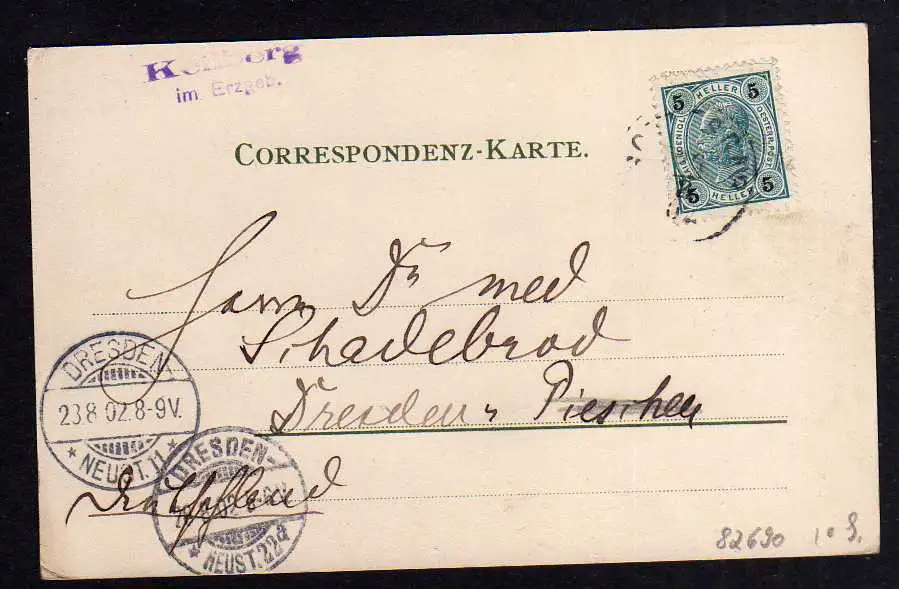 Keilberg
im Erzgeb.
CORRESPONDENZ-KARTE.
5 HELLER 5
5 HELLER 5
Herrn Dr med
Schadebrod
Dresden Pieschen
DRESDEN-
23.8.02.8-9V.
* NEUST.11 *
DRESDEN-
* NEUST.22a
82690 10 9.